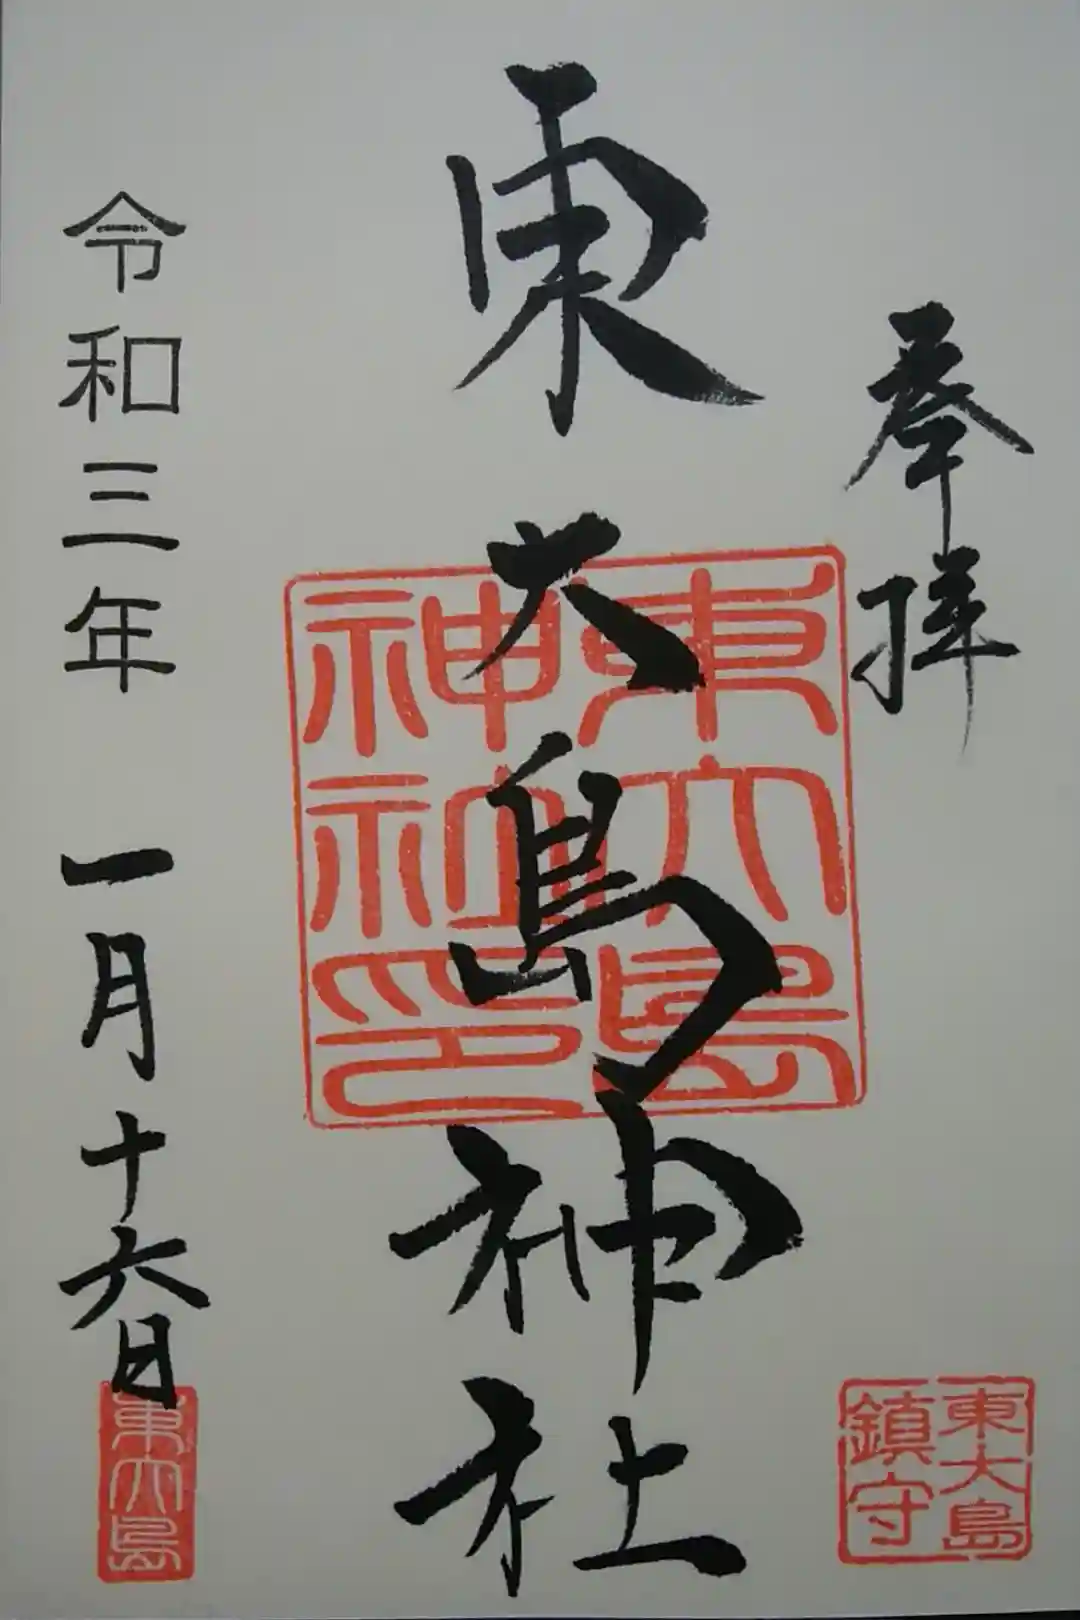 奉拝
東大島神社
東大島
神社印
令和三年 一月十六日
東大島
鎮守
東大島